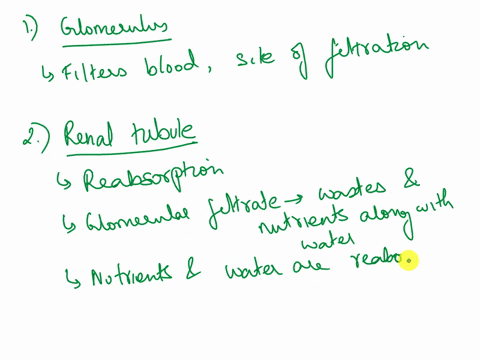 1.) Glomerulus
↳ Filters blood, site of filtration
2.) Renal tubule
↳ Reabsorption
↳ Glomerular filtrate → wastes &
nutrients along with
water
↳ Nutrients & water are reabo